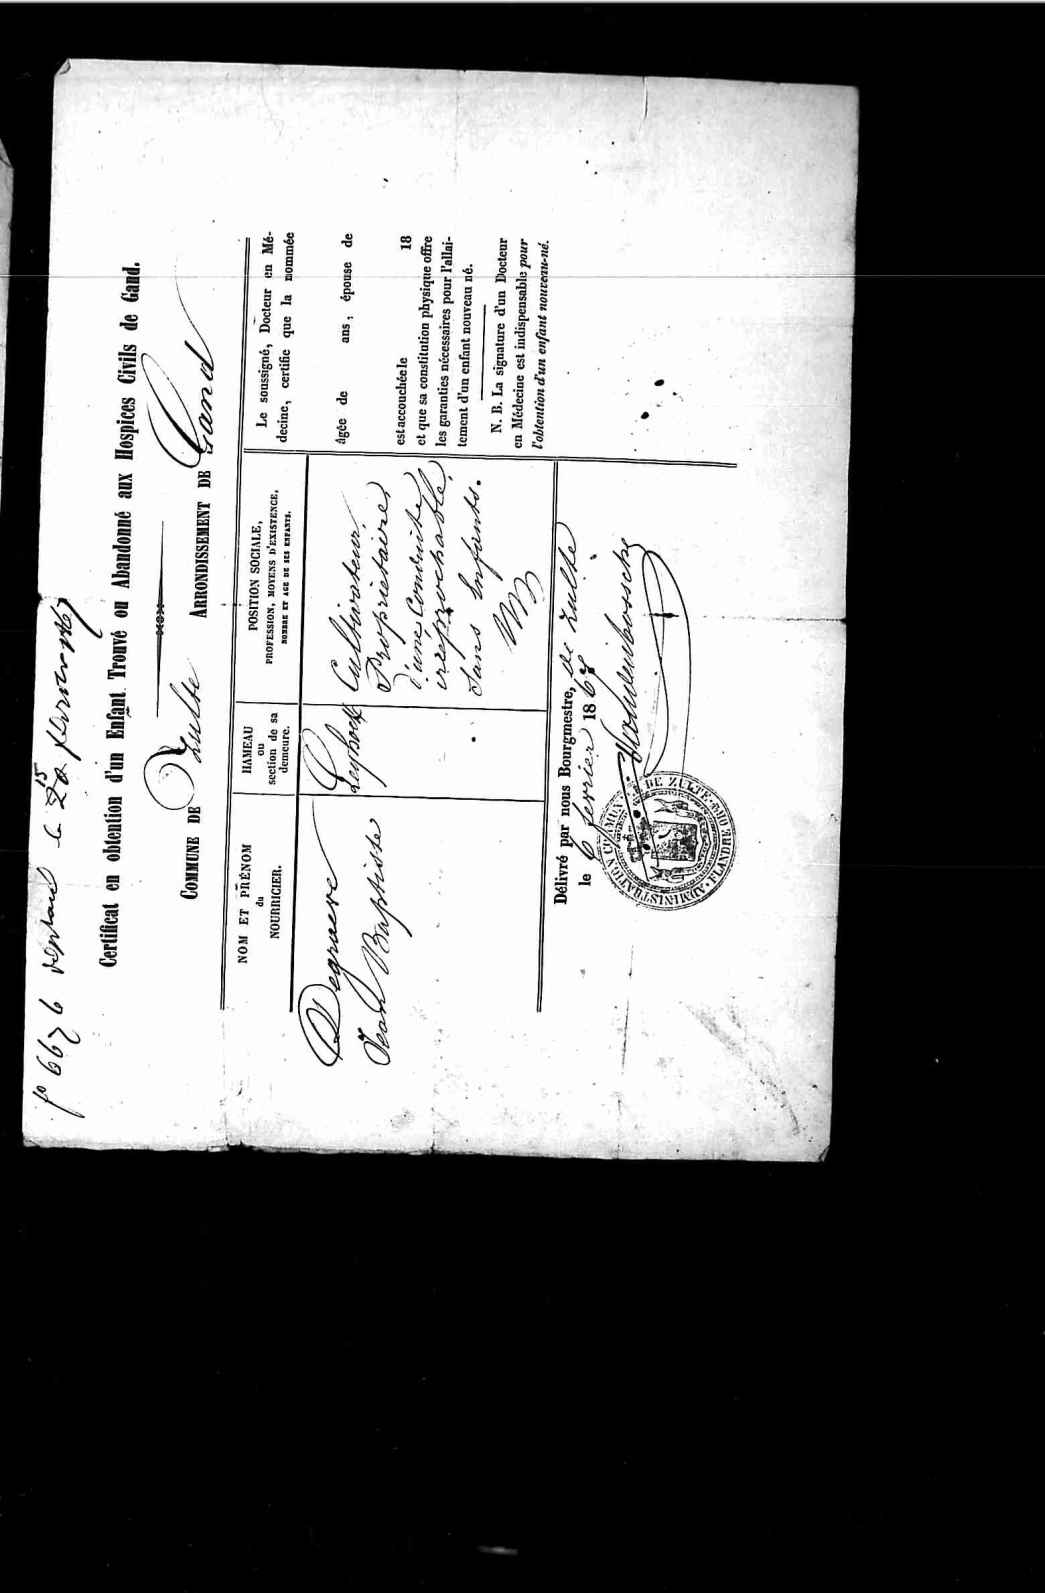 fo 6676 le 15
Certificat en obtention d'un Enfant Trouvé ou Abandonné aux Hospices Civils de Gand.
COMMUNE DE Zulte ARRONDISSEMENT DE Gand
NOM ET PRÉNOM
du
NOURRICIER.
Degraeve
Jean Baptiste
HAMEAU
ou
section de sa
demeure.
POSITION SOCIALE,
PROFESSION, MOYENS D'EXISTENCE,
NOMBRE ET AGE DE SES ENFANTS.
Cultivateur
Propriétaire,
d'une Conduite
irréprochable,
Sans Enfants.
Le soussigné, Docteur en Mé-
decine, certifie que la nommée
âgée de ans, épouse de
est accouchée le 18
et que sa constitution physique offre
les garanties nécessaires pour l'allai-
tement d'un enfant nouveau né.
N. B. La signature d'un Docteur
en Médecine est indispensable pour
l'obtention d'un enfant nouveau-né.
Délivré par nous Bourgmestre, de Zulte
le 6 fevrier 1867
ADMINISTRATION COMMUN. DE ZULTE FLANDRE